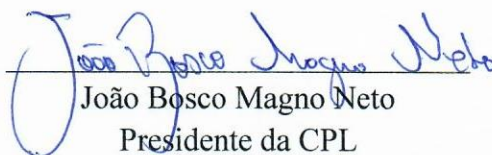 João Bosco Magno Neto
João Bosco Magno Neto
Presidente da CPL